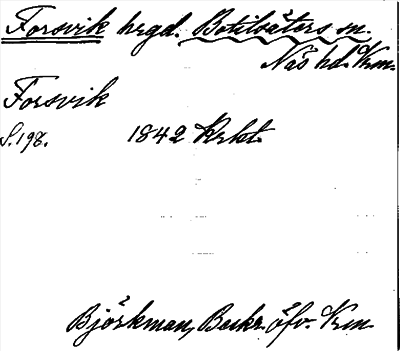 Forsvik hrgd. Botilsäters sn.
Näs hd. Krm.
Forsvik
S. 198. 1842 Krkt.
Björkman, Beskr. öfv. Krm